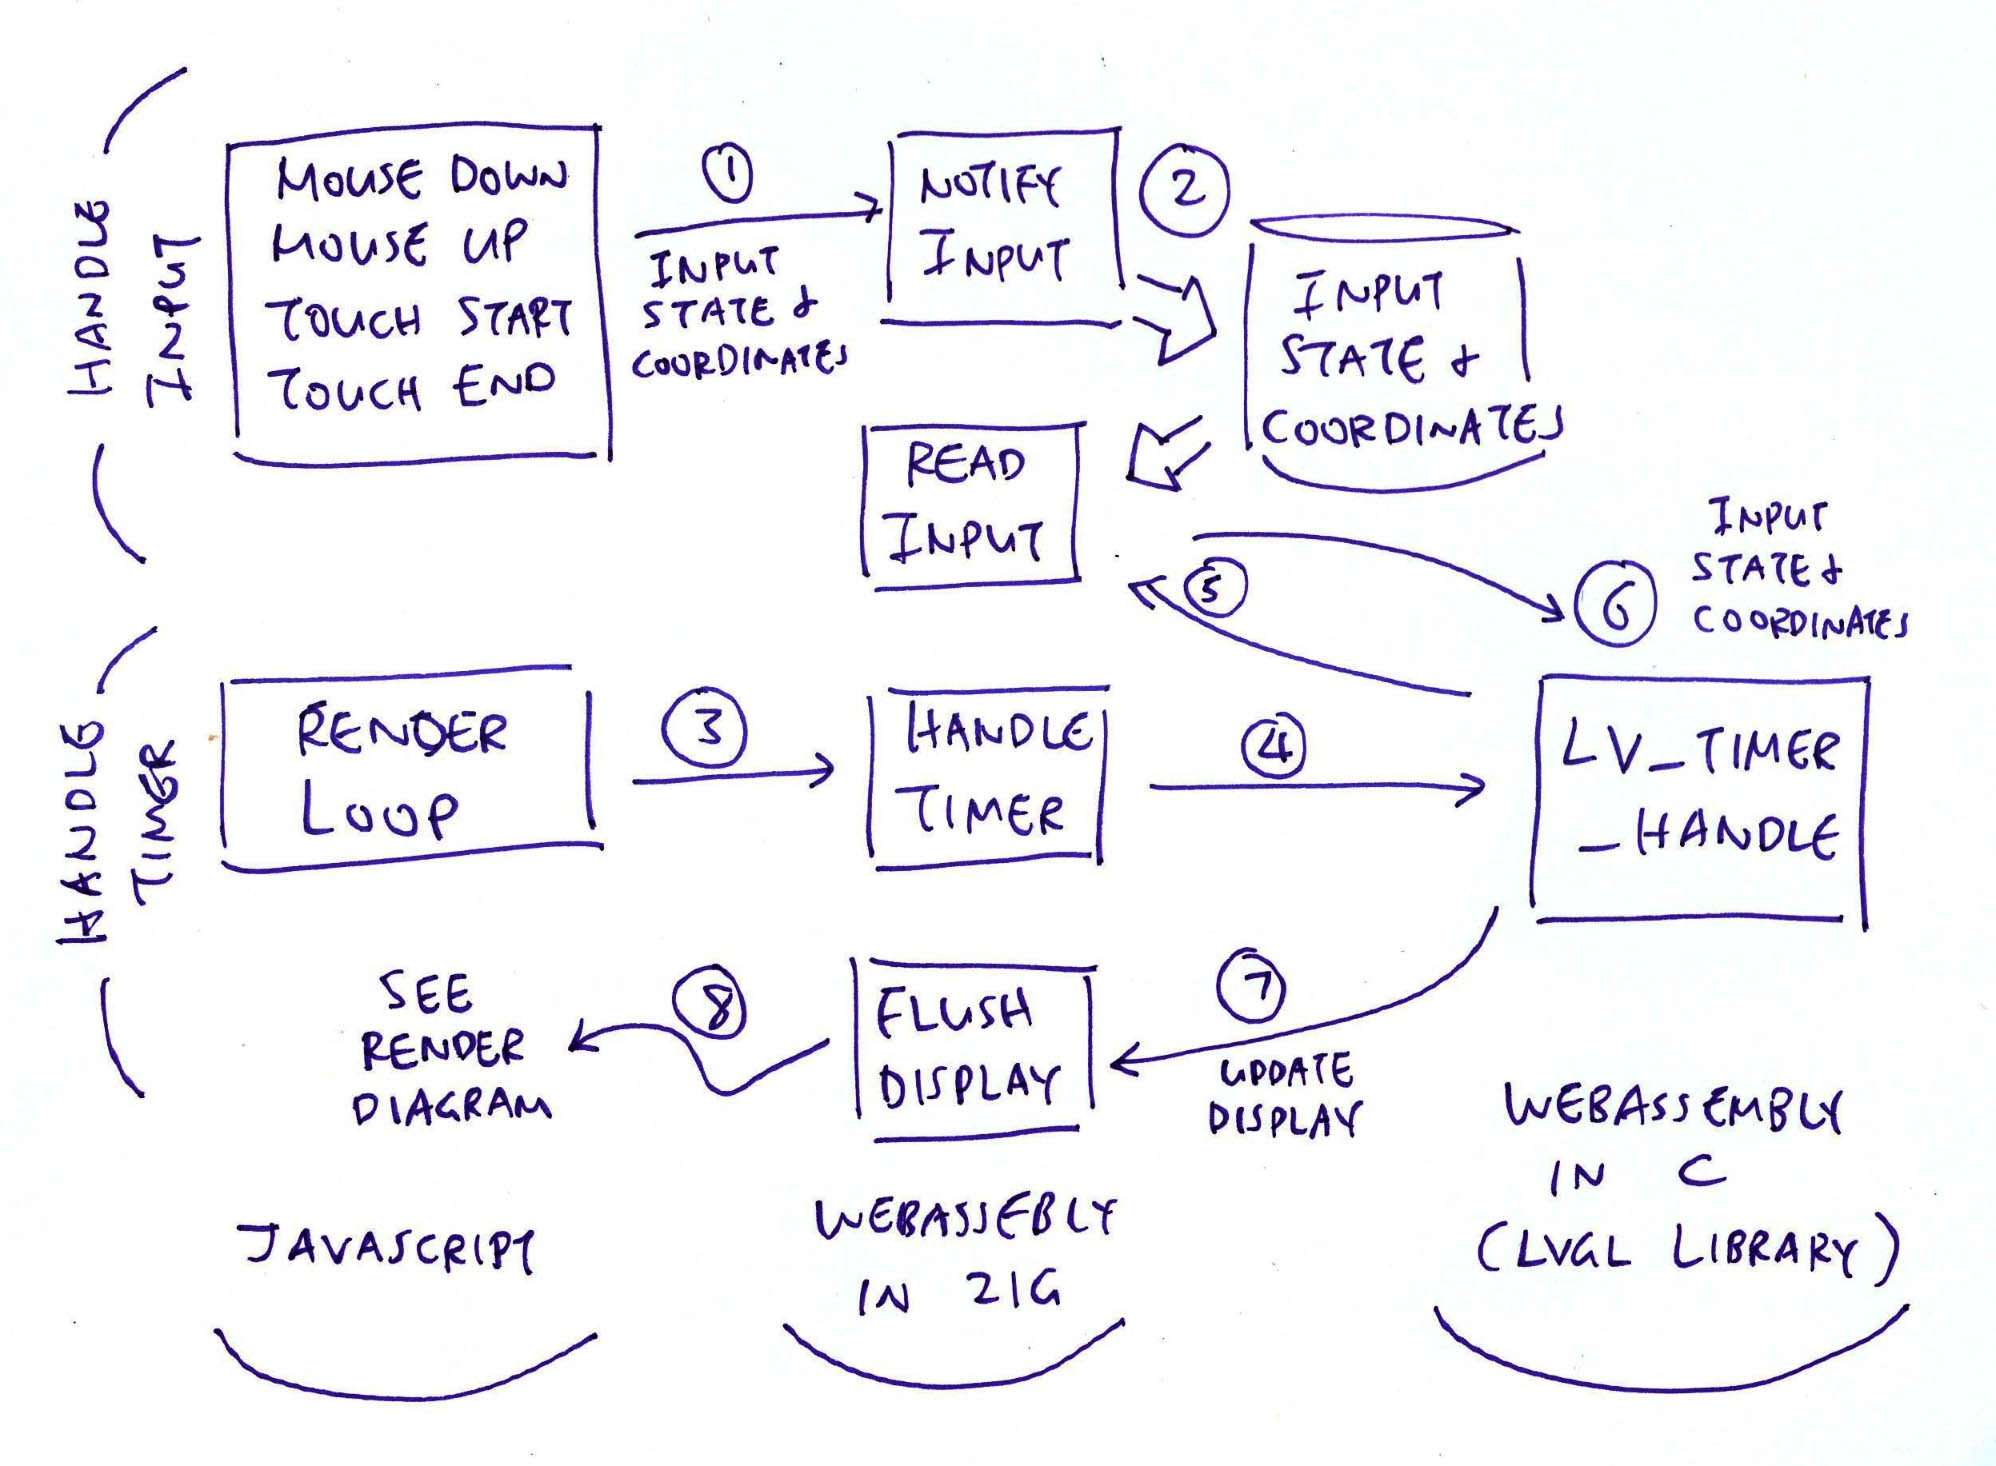 HANDLE
INPUT
MOUSE DOWN
MOUSE UP
TOUCH START
TOUCH END
1
INPUT
STATE &
COORDINATES
NOTIFY
INPUT
2
INPUT
STATE &
COORDINATES
READ
INPUT
5
6
INPUT
STATE &
COORDINATES
HANDLE
TIMER
RENDER
LOOP
3
HANDLE
TIMER
4
LV_TIMER
_HANDLE
SEE
RENDER
DIAGRAM
8
FLUSH
DISPLAY
7
UPDATE
DISPLAY
JAVASCRIPT
WEBASSEBLY
IN ZIG
WEBASSEMBLY
IN C
(LVGL LIBRARY)